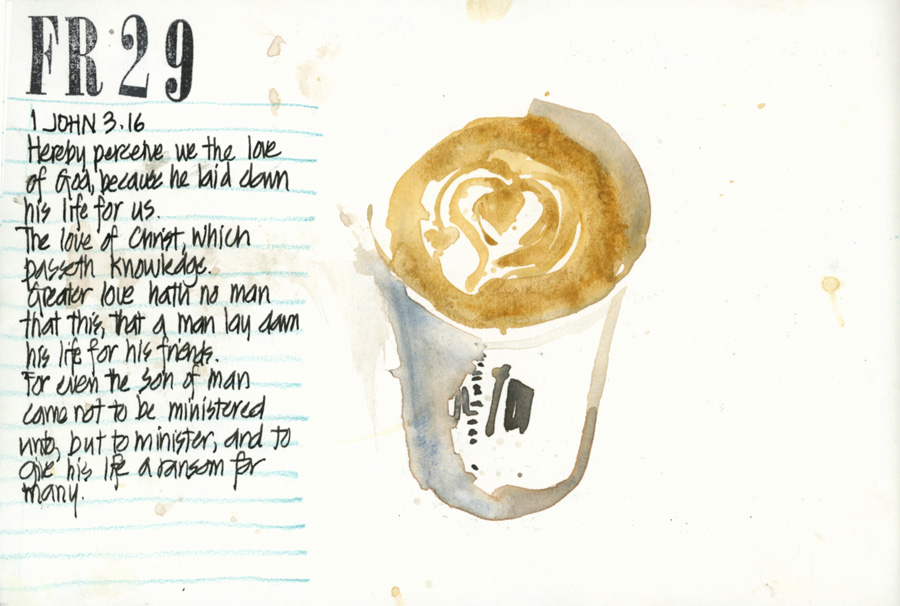 FR 29
1 JOHN 3.16
Hereby perceive we the love
of God, because he laid down
his life for us.
The love of Christ, which
passeth knowledge.
Greater love hath no man
that this, that a man lay down
his life for his friends.
For even the Son of man
came not to be ministered
unto, but to minister, and to
give his life a ransom for
many.